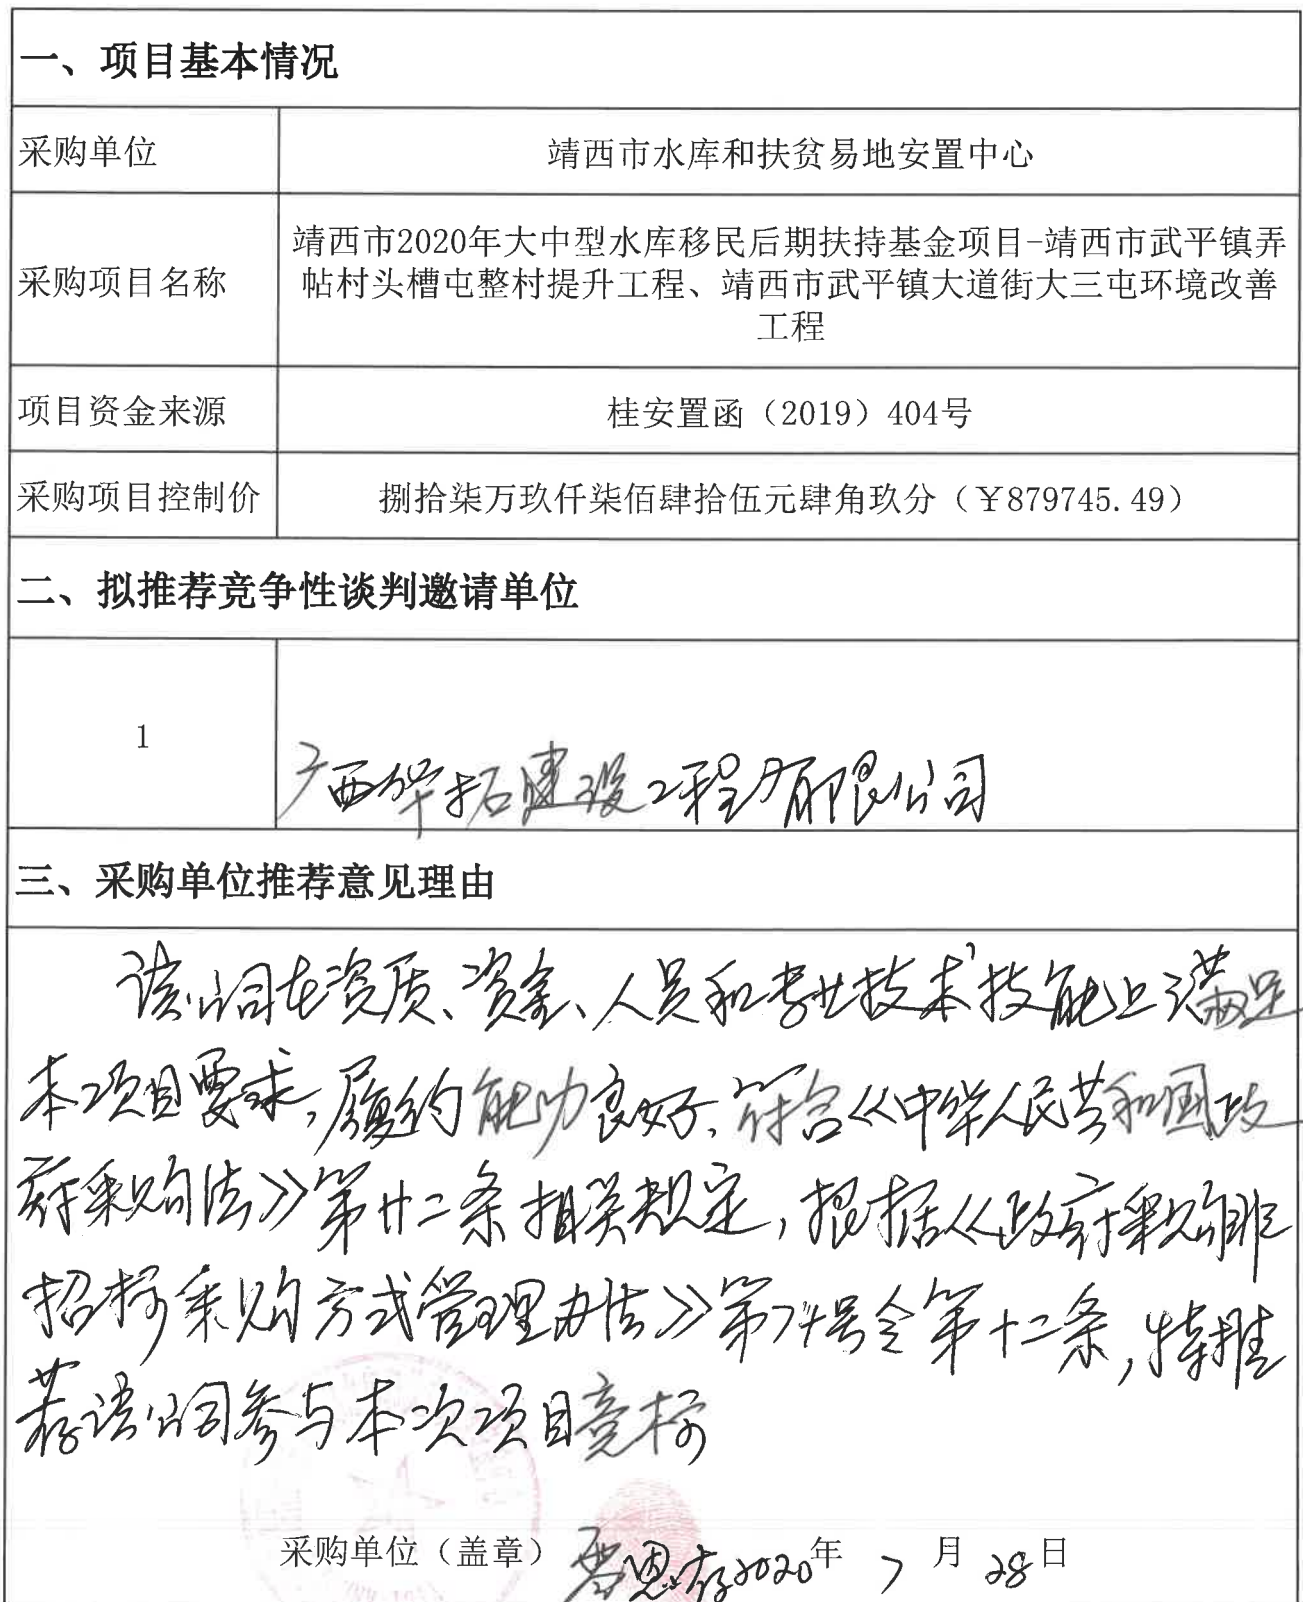 一、项目基本情况
采购单位
靖西市水库和扶贫易地安置中心
采购项目名称
靖西市2020年大中型水库移民后期扶持基金项目-靖西市武平镇弄
帖村头槽屯整村提升工程、靖西市武平镇大道街大三屯环境改善
工程
项目资金来源
桂安置函（2019）404号
采购项目控制价
捌拾柒万玖仟柒佰肆拾伍元肆角玖分（￥879745.49）
二、拟推荐竞争性谈判邀请单位
1
广西华拓建设工程有限公司
三、采购单位推荐意见理由
该公司在资质、资金、人员和专业技术技能上满足
本项目要求，履约能力良好，符合《中华人民共和国政
府采购法》第廿二条相关规定，根据《政府采购非
招标采购方式管理办法》第74号令第十二条，特推
荐该公司参与本次项目竞标
采购单位（盖章）
2020年 7 月 28日